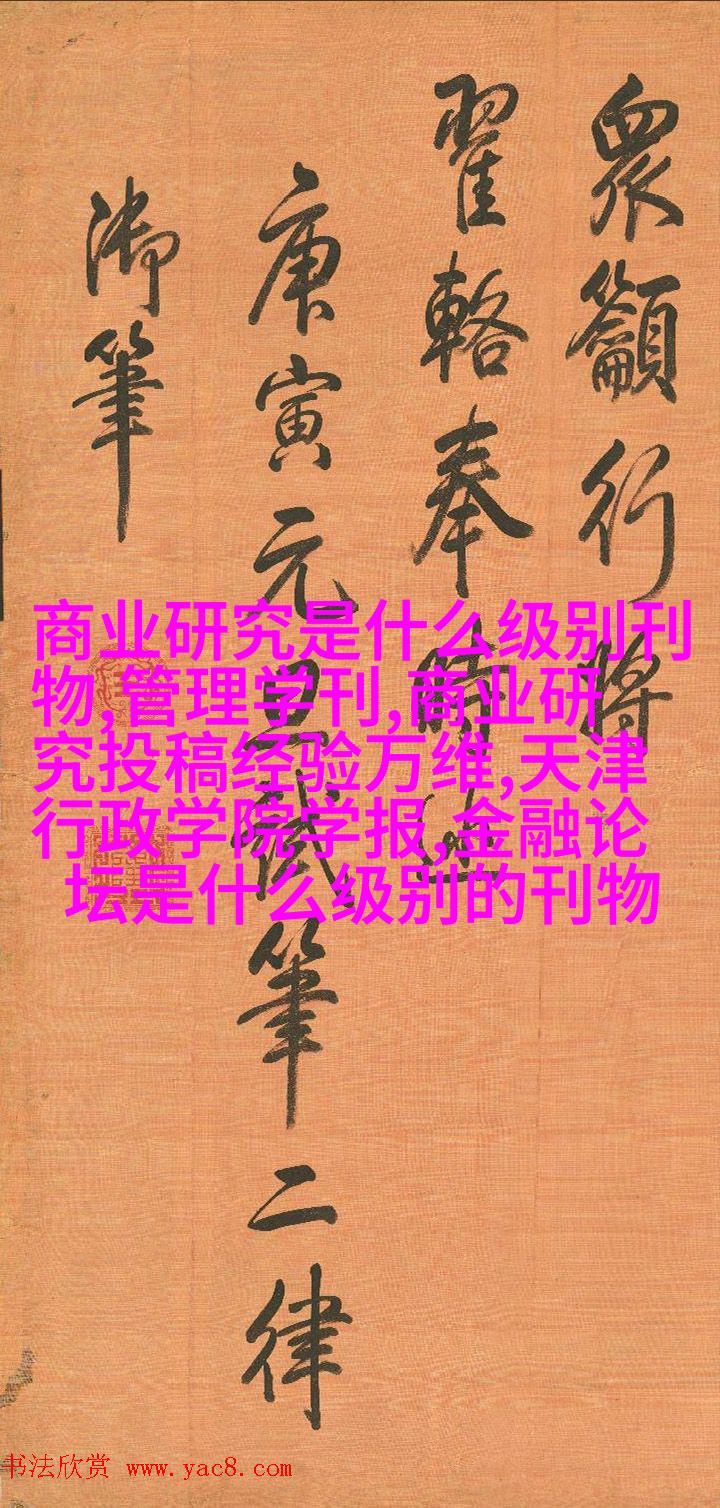 眾籲行將
翟輅奉時巡
庚寅元旦試筆二律
御筆
商业研究是什么级别刊
物,管理学刊,商业研
究投稿经验万维,天津
行政学院学报,金融论
坛是什么级别的刊物
书法欣赏 www.yac8.com